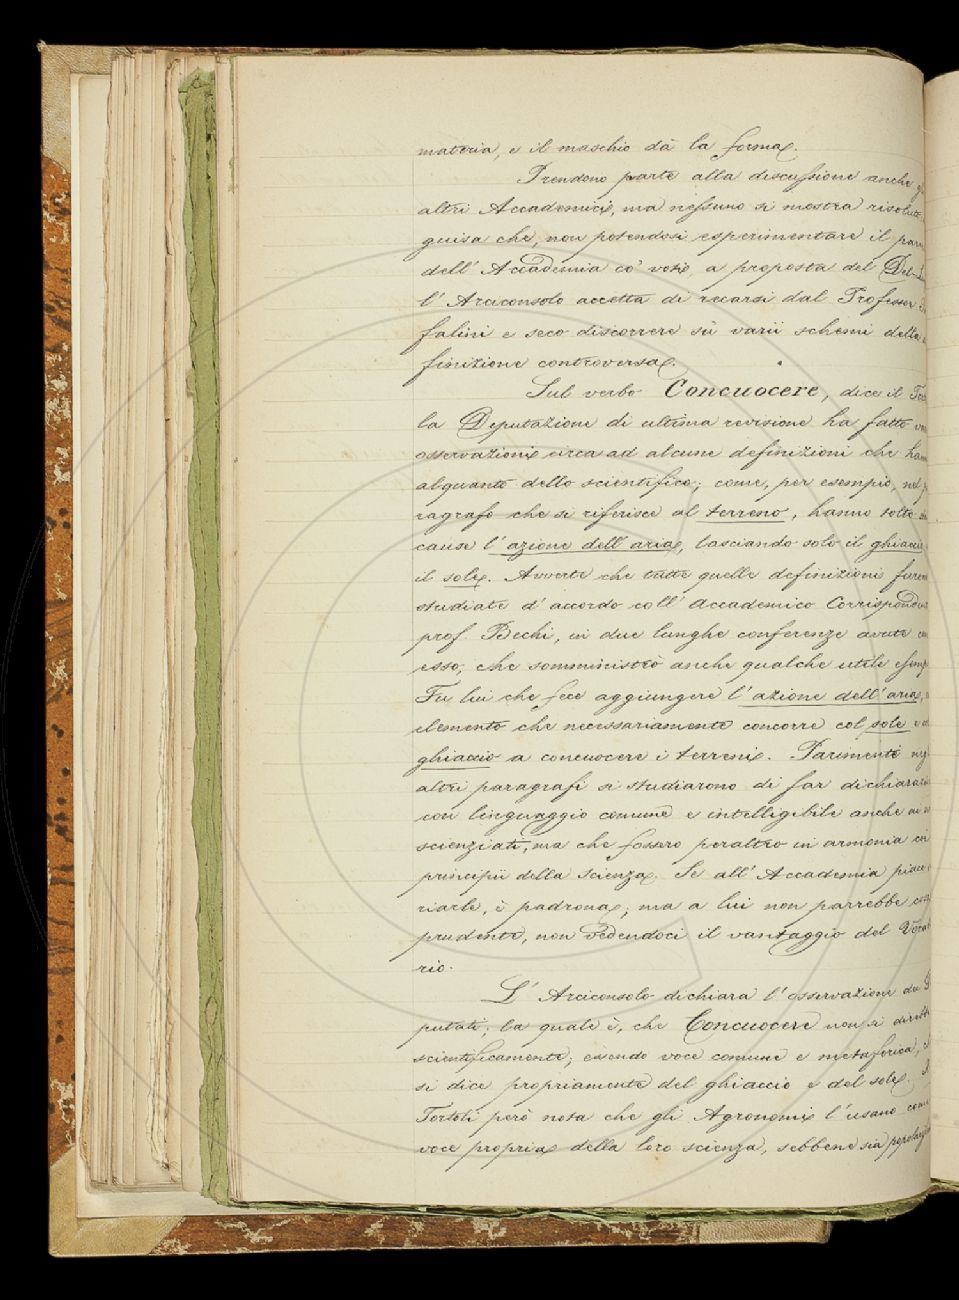 materia, e il maschio dà la forma.
Prendono parte alla discussione anche
altri Accademici, ma nessuno si mostra
guisa che, non potendosi esperimentare il
dell' Accademia co' voti, a proposta del
l' Arciconsolo accetta di recarsi dal Professor
falini e seco discorrere sù varii schemi della
finizione controversa.
Sul verbo Concuocere, dice il
la Deputazione di ultima revisione ha fatto
osservazioni circa ad alcune definizioni che
alquanto dello scientifico; come, per esempio, nel
ragrafo che si riferisce al terreno, hanno tolto
cause l' azione dell' aria, lasciando solo il ghiaccio
il sole. Avverte che tutte quelle definizioni
studiate d' accordo coll' Accademico
prof. Bechi, in due lunghe conferenze avute
esso, che somministrò anche qualche utile
Fu lui che fece aggiungere l' azione dell' aria,
elemento che necessariamente concorre col sole e
ghiaccio a concuocere i terreni. Parimente
altri paragrafi si studiarono di far
con linguaggio comune e intelligibile anche ai
scienziati, ma che fossero peraltro in armonia
principii della Scienza. Se all' Accademia
riarle, è padrona; ma a lui non parrebbe
prudente, non vedendoci il vantaggio del
rio.
L' Arciconsolo dichiara l' osservazione dei
putati; la quale è, che Concuocere non si
scientificamente, essendo voce comune e metaforica,
si dice propriamente del ghiaccio e del sole.
Tortoli però nota che gli Agronomi l' usano come
voce propria della loro scienza, sebbene sia